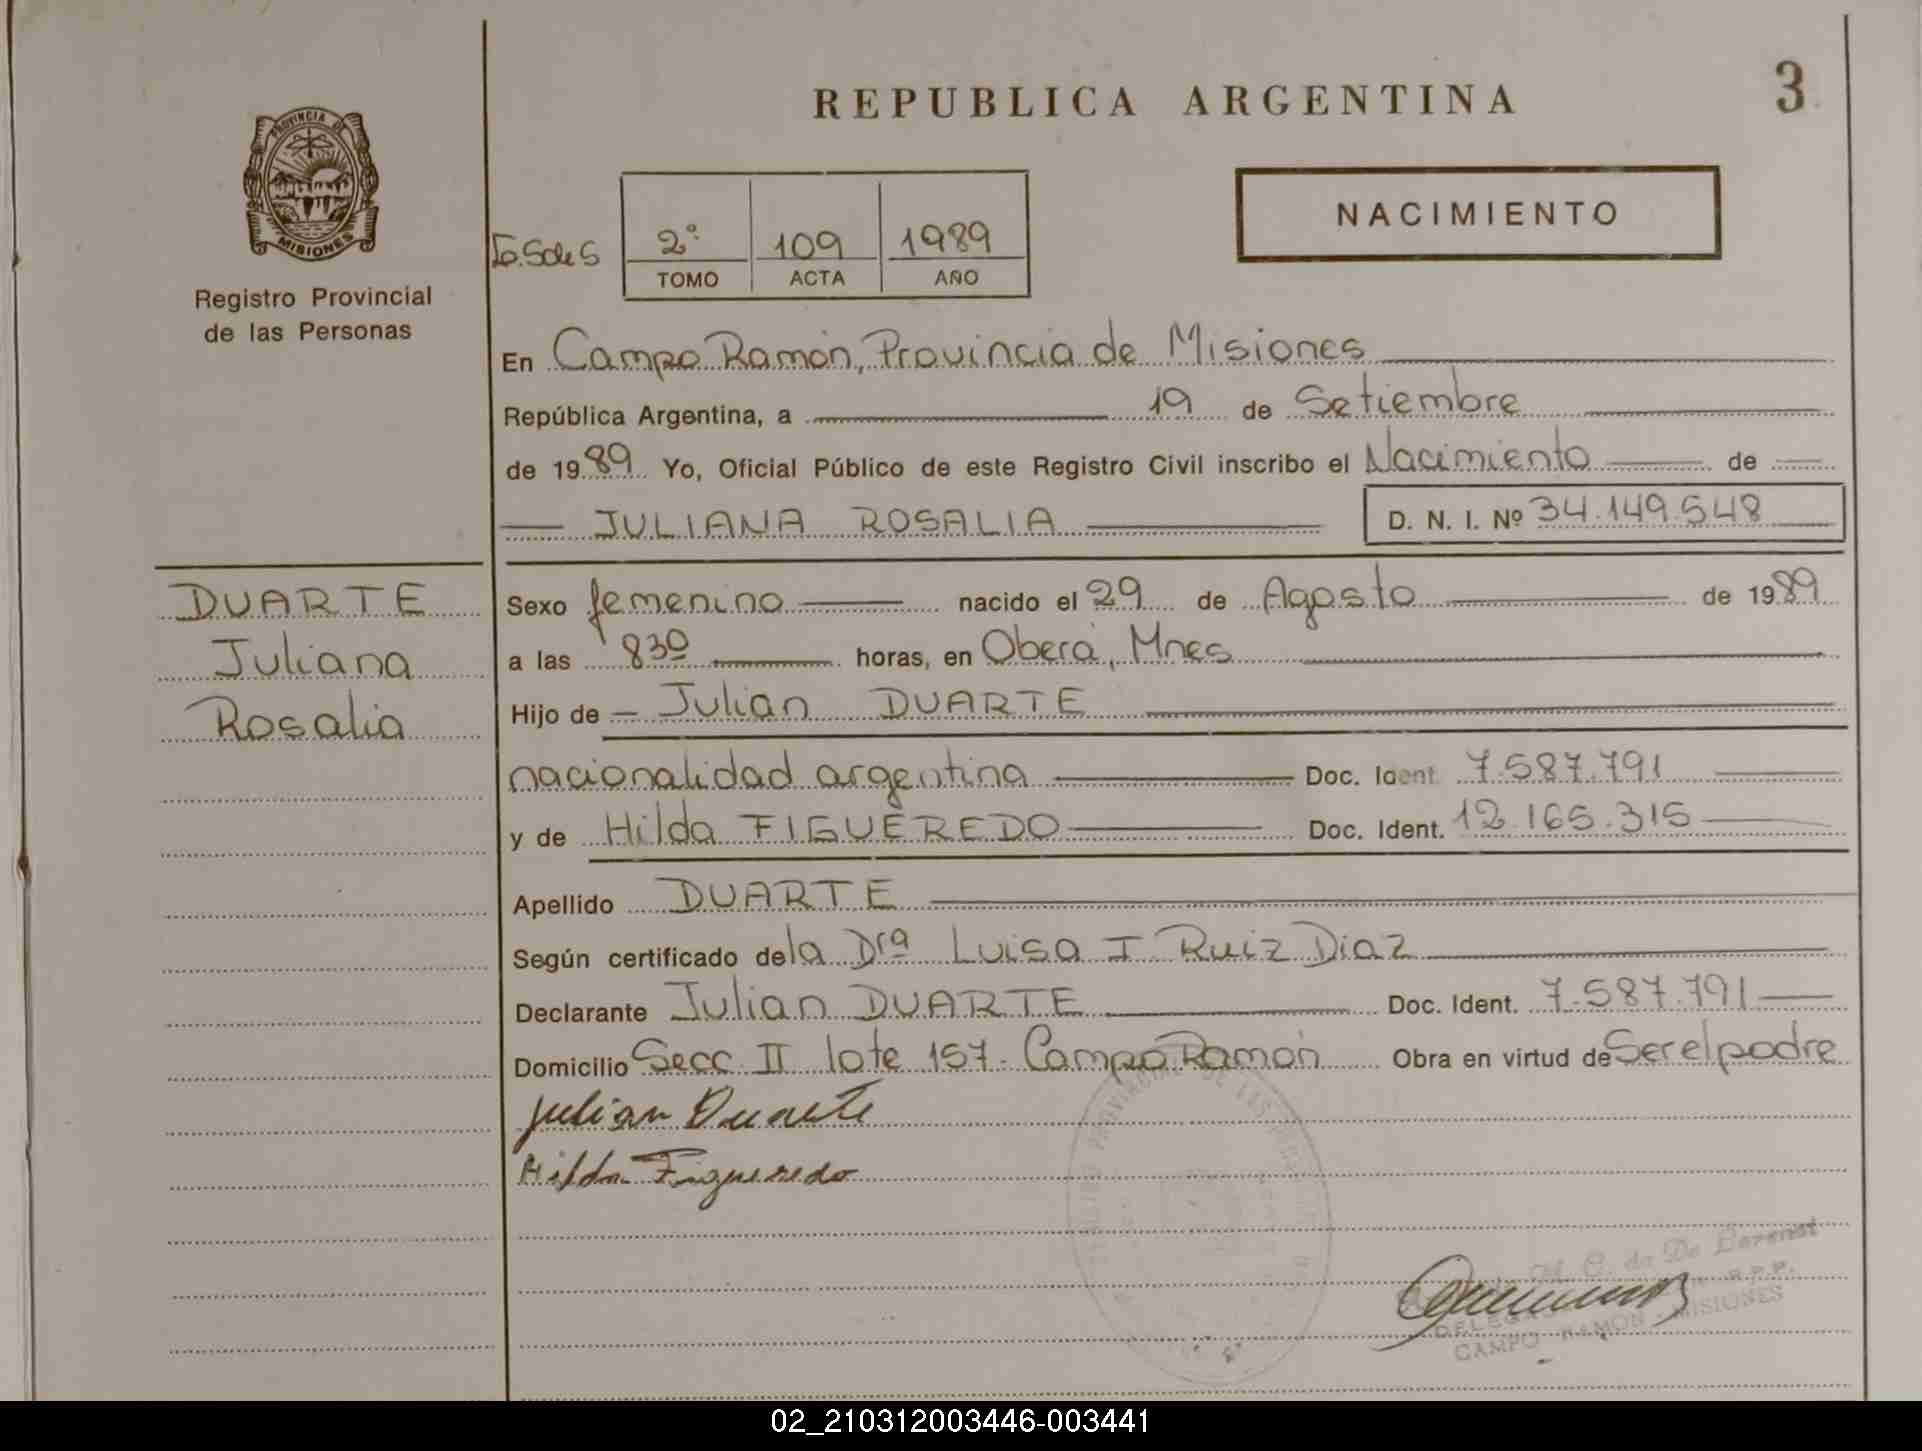 REPUBLICA ARGENTINA
3
PROVINCIA DE
MISIONES
Registro Provincial
de las Personas
2º 109 1989
TOMO ACTA AÑO
NACIMIENTO
En Campo Ramón, Provincia de Misiones
República Argentina, a 19 de Setiembre
de 1989 Yo, Oficial Público de este Registro Civil inscribo el Nacimiento de
JULIANA ROSALIA D. N. I. Nº 34.149.548
DUARTE
Juliana
Rosalia
Sexo femenino nacido el 29 de Agosto de 1989
a las 830 horas, en Oberá, Mnes
Hijo de Julian DUARTE
nacionalidad argentina Doc. Ident. 7.587.791
y de Hilda FIGUEREDO Doc. Ident. 12.165.315
Apellido DUARTE
Según certificado de la Dra Luisa I Ruiz Diaz
Declarante Julian DUARTE Doc. Ident. 7.587.791
Domicilio Secc. II lote 157 - Campo Ramón Obra en virtud de Ser el padre
Julian Duarte
Hilda Figueredo
CAMPO RAMON - MISIONES
02_210312003446-003441